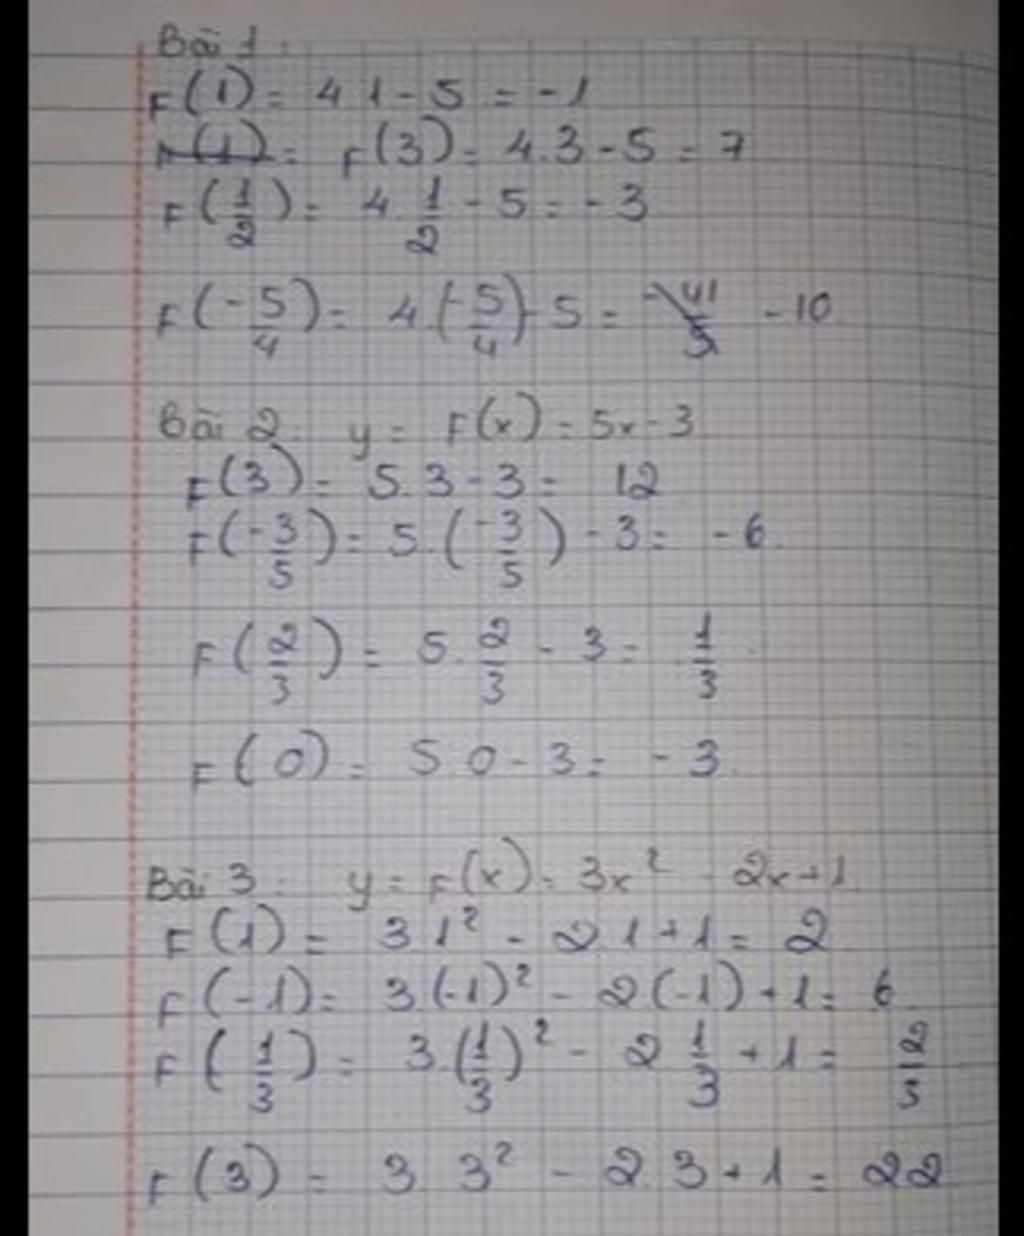 Bài 1:
F(1) = 4.1 - 5 = -1
F(1) = F(3) = 4.3 - 5 = 7
F(1/2) = 4 1/2 - 5 = -3
F(-5/4) = 4.(-5/4) - 5 = -41/5 - 10
Bài 2: y = F(x) = 5x - 3
F(3) = 5.3 - 3 = 12
F(-3/5) = 5.(-3/5) - 3 = -6.
F(2/3) = 5.2/3 - 3 = 1/3
F(0) = 5.0 - 3 = -3
Bài 3: y = F(x) = 3x² - 2x + 1
F(1) = 3.1² - 2.1 + 1 = 2
F(-1) = 3.(-1)² - 2(-1) + 1 = 6
F(1/3) = 3.(1/3)² - 2 1/3 + 1 = 2/3
F(3) = 3.3² - 2.3 + 1 = 22